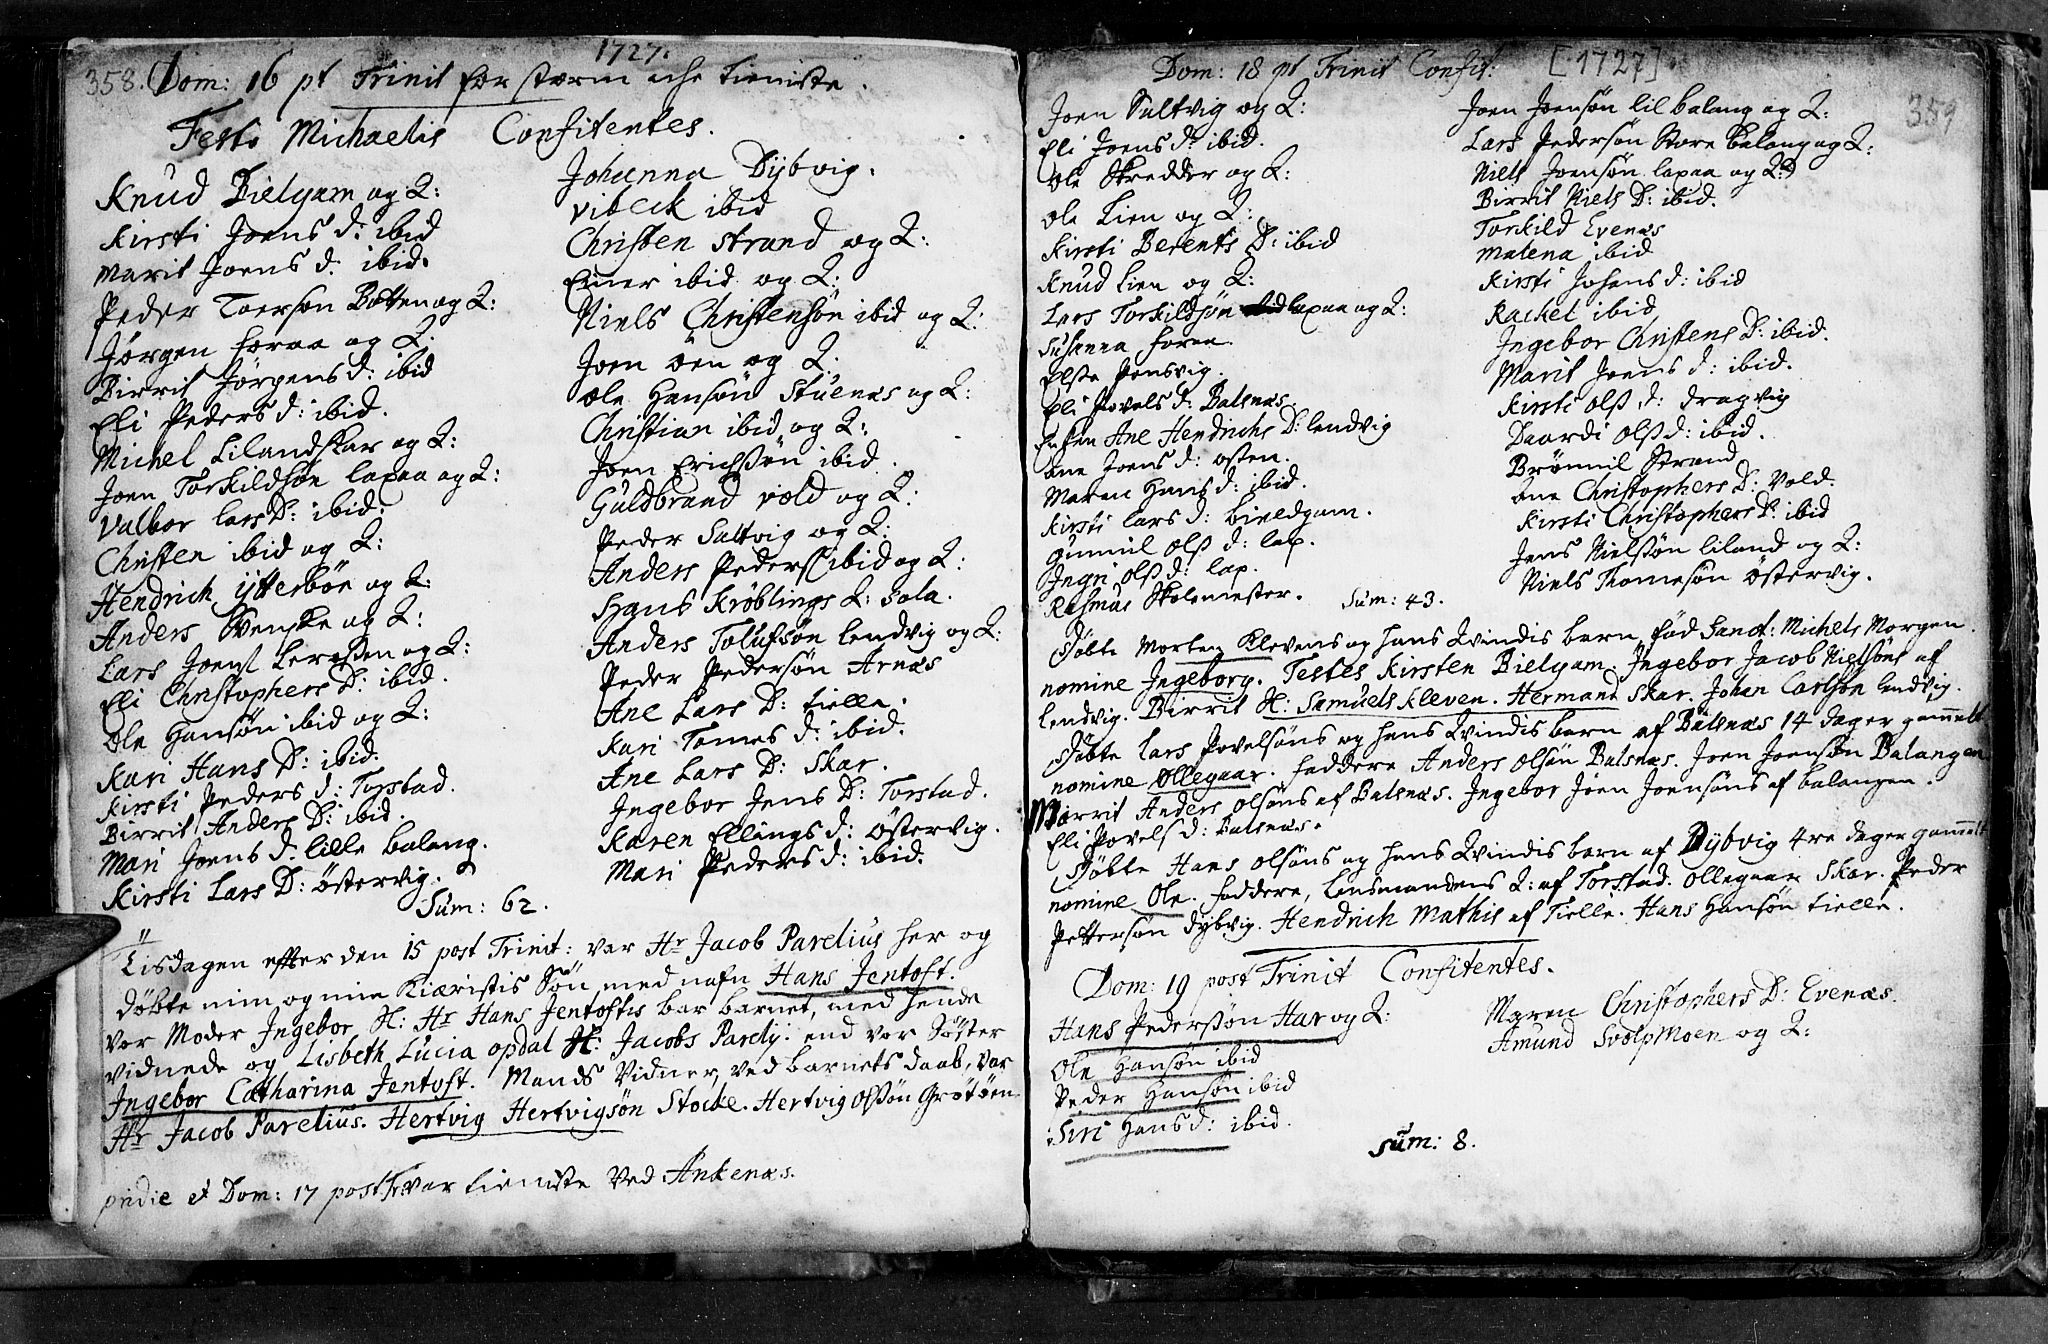 1727.
358. Dom: 16 pt Trinit for storm iche tieniste.
Festo Michaelis Confitentes.
Knud Bielgam og Q:
Kirsti Joens d: ibid
Marit Joens d: ibid.
Peder Toerson Botten og Q:
Jørgen foraa og Q:
Birrit Jørgens d: ibid
Eli Peders d: ibid.
Michel Lilandskar og Q:
Joen Torkildsøn lapaa og Q:
Valbor lars D: ibid.
Christen ibid og Q:
Hendrich ytterbøe og Q:
Anders Svenske og Q:
Lars Joens og Q:
Eli Christophers D: ibid.
Ole Hansøn ibid og Q:
Kari Hans D: ibid.
Kirsti Peders d: Torstad.
Birrit Anders D: ibid.
Mari Joens d: lille balang.
Kirsti Lars D: østervig.
Johanna Dybvig.
Vibeck ibid
Christen strand og Q:
Einer ibid og Q:
Niels Christensøn ibid og Q:
Joen øen og Q:
Ole Hansøn Stuenæs og Q:
Christian ibid og Q:
Joen Erichssøn ibid.
Guldbrand vold og Q:
Peder Saltvig og Q:
Anders Peders ibid og Q:
Hans Krøblings Q: Sola.
Anders Tolufsøn lendvig og Q:
Peder Pedersøn Arnæs
Ane Lars D: tielle.
Kari Tomes d: ibid.
Ane Lars D: Skar.
Ingebor Jens D: Torstad.
Karen Ellings d: østervig.
Mari Peders d: ibid.
Sum: 62.
Tisdagen effter den 15 post Trinit: var Hr Jacob Parelius her og
døbte min og min Kiæristis Søn med nafn Hans Jentoft.
Vor Moder Ingebor H: Hr Hans Jentoftis bar barnet, med hende
vidnede og Lisbeth Lucia opdal H: Jacobs Parely: end vor Søster
Ingebor Catharina Jentoft. Mands Vidner, ved barnets daab, var
Hr Jacob Parelius. Hertvig Hertvigsøn Stocke. Hertvig Olssøn Grøtøen
pridie et Dom: 17 post Tr: var tieniste ved Ankenæs.
Dom: 18 pt Trinit Confit: [1727]
359
Joen Saltvig og Q:
Eli Joens d: ibid.
Ole Skredder og Q:
Ole Lien og Q:
Kirsti Berents D: ibid
Knud Lien og Q:
Lars Torkildsøn lapaa og Q:
Susanna foraa.
Else Pensvig.
Eli Povels d: Balsnæs.
Ane Hendrichs D: lendvig
Ane Joens d: osten.
Maren Hans d: ibid.
Kirsti lars d: bieldgam.
Gunnil olss d: lap.
Ingri olss d: lap.
Rasmus Skolemester.
Joen Joensøn lil balang og Q:
Lars Pedersøn Store balang og Q:
Niels Joensøn lapaa og Q:
Birrit Niels D: ibid.
Torkild Evenæs
Malena ibid
Kirsti Johans d: ibid
Rachel ibid
Ingebor Christens D: ibid.
Marit Joens d: ibid.
Kirsti Olss d: dragvig
Daardi olss d: ibid.
Brønnil Strand
Ane Christophers D: Vold.
Kirsti Christophers D: ibid
Jens Nielssøn liland og Q:
Niels Thomesøn østervig.
Sum: 43.
Døbte Morten Klevens og hans Qvindis barn, fød Sanct: Michels Morgen.
nomine Ingeborg. Testes Kirsten Bielgam. Ingebor Jacob Nielsøns af
lendvig. Birrit H: Samuels kleven. Hermand Skar. Johan Carlsøn lendvig.
Døbte Lars Povelsøns og hans Qvindis barn af Balsnæs 14 dager gammelt
nomine Ollegaar. faddere Anders Olsøn Balsnæs. Joen Joensøn Balangen
Marrit Anders Olsøns af Balsnæs. Ingebor Joen Joensøns af balangen.
Eli Povels d: Balsnæs.
Døbte Hans Olsøns og hans Qvindis barn af Dybvig 4re dager gammelt
nomine Ole. faddere, Lensmandens Q: af Torstad. Ollegaar Skar. Peder
Pettersøn dybvig. Hendrich Mathis af Tielle. Hans Hansøn tielle.
Dom: 19 post Trinit Confitentes.
Hans Pederssøn Har og Q:
Ole Hansøn ibid
Peder Hansøn ibid
Siri Hans d: ibid.
Maren Christophers D: Evenæs.
Amund Svolpmoen og Q:
Sum: 8.